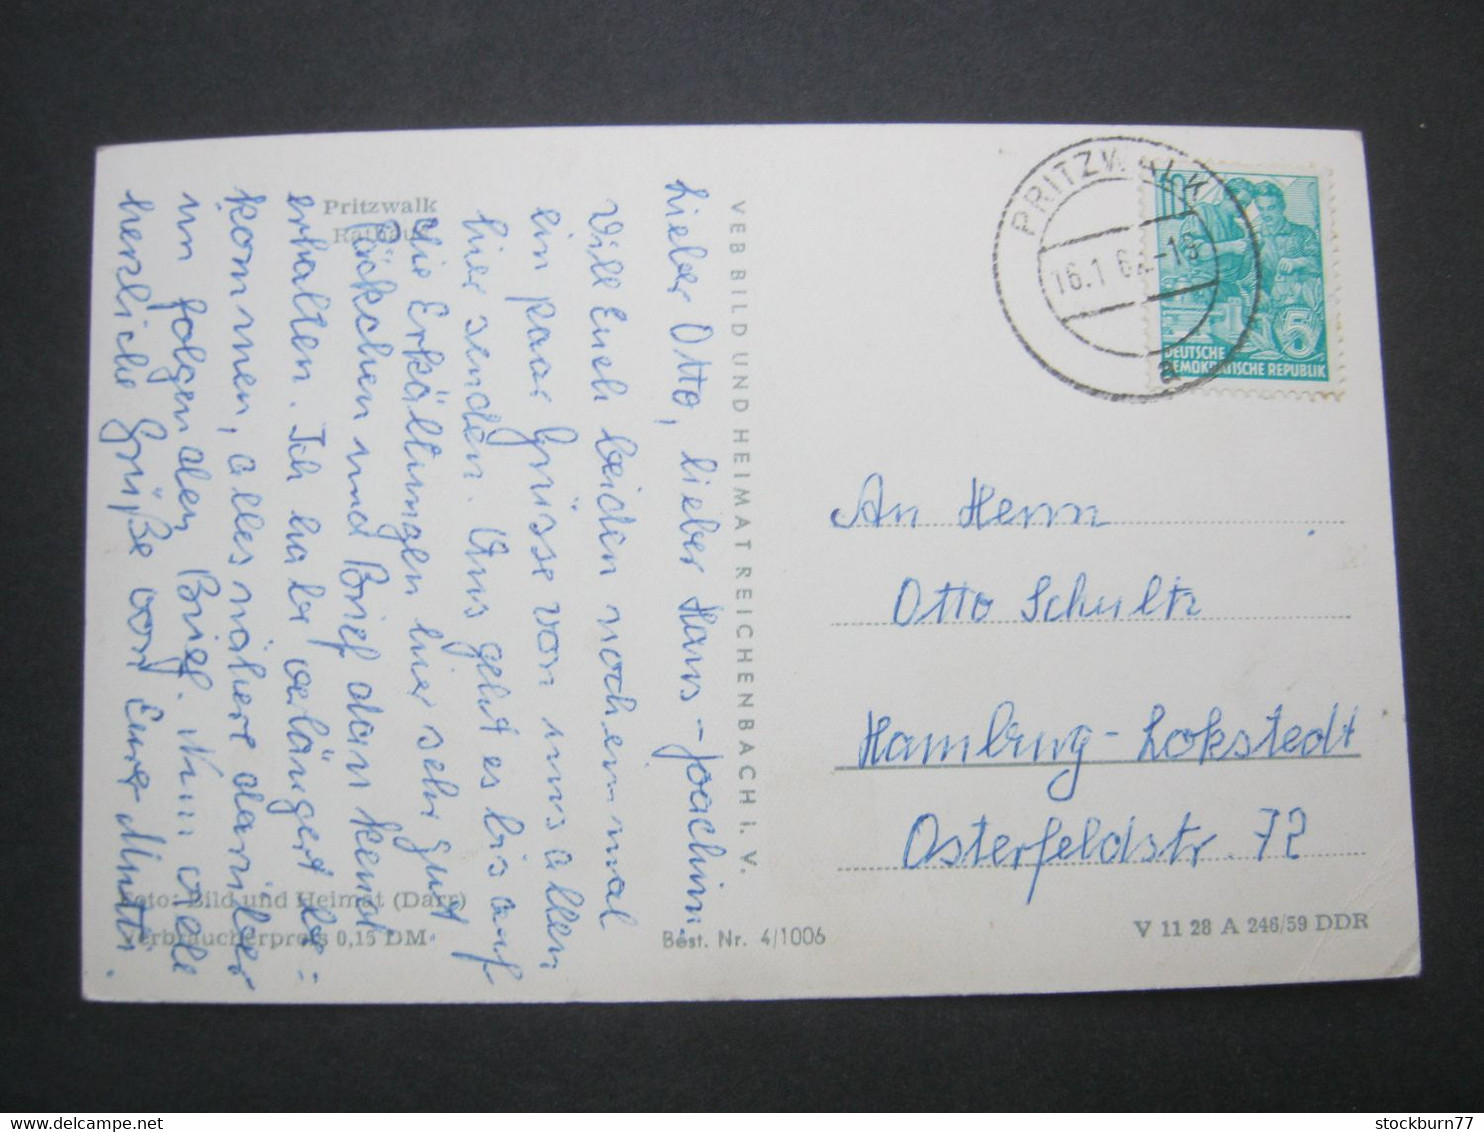 Pritzwalk
Rathaus
Lieber Otto, lieber Hans-Joachim
Will Euch beiden noch einmal
ein paar Grüsse von uns allen
hier senden. Uns geht es bis auf
die Erkältungen hier sehr gut.
Päckchen und Brief dankend
erhalten. Ich habe verlängert be-
kommen, alles nähere darüber
im folgenden Brief. Nun viele
herzliche Grüße von Eurer Mutti.
Foto: Bild und Heimat (Darr)
Verbraucherpreis 0,15 DM
Best. Nr. 4/1006
VEB BILD UND HEIMAT REICHENBACH I. V.
PRITZWALK
16.1.62-16
a
10
5
DEUTSCHE
DEMOKRATISCHE REPUBLIK
An Herrn
Otto Schultz
Hamburg-Lokstedt
Osterfeldstr. 72
V 11 28 A 246/59 DDR
stockburn77